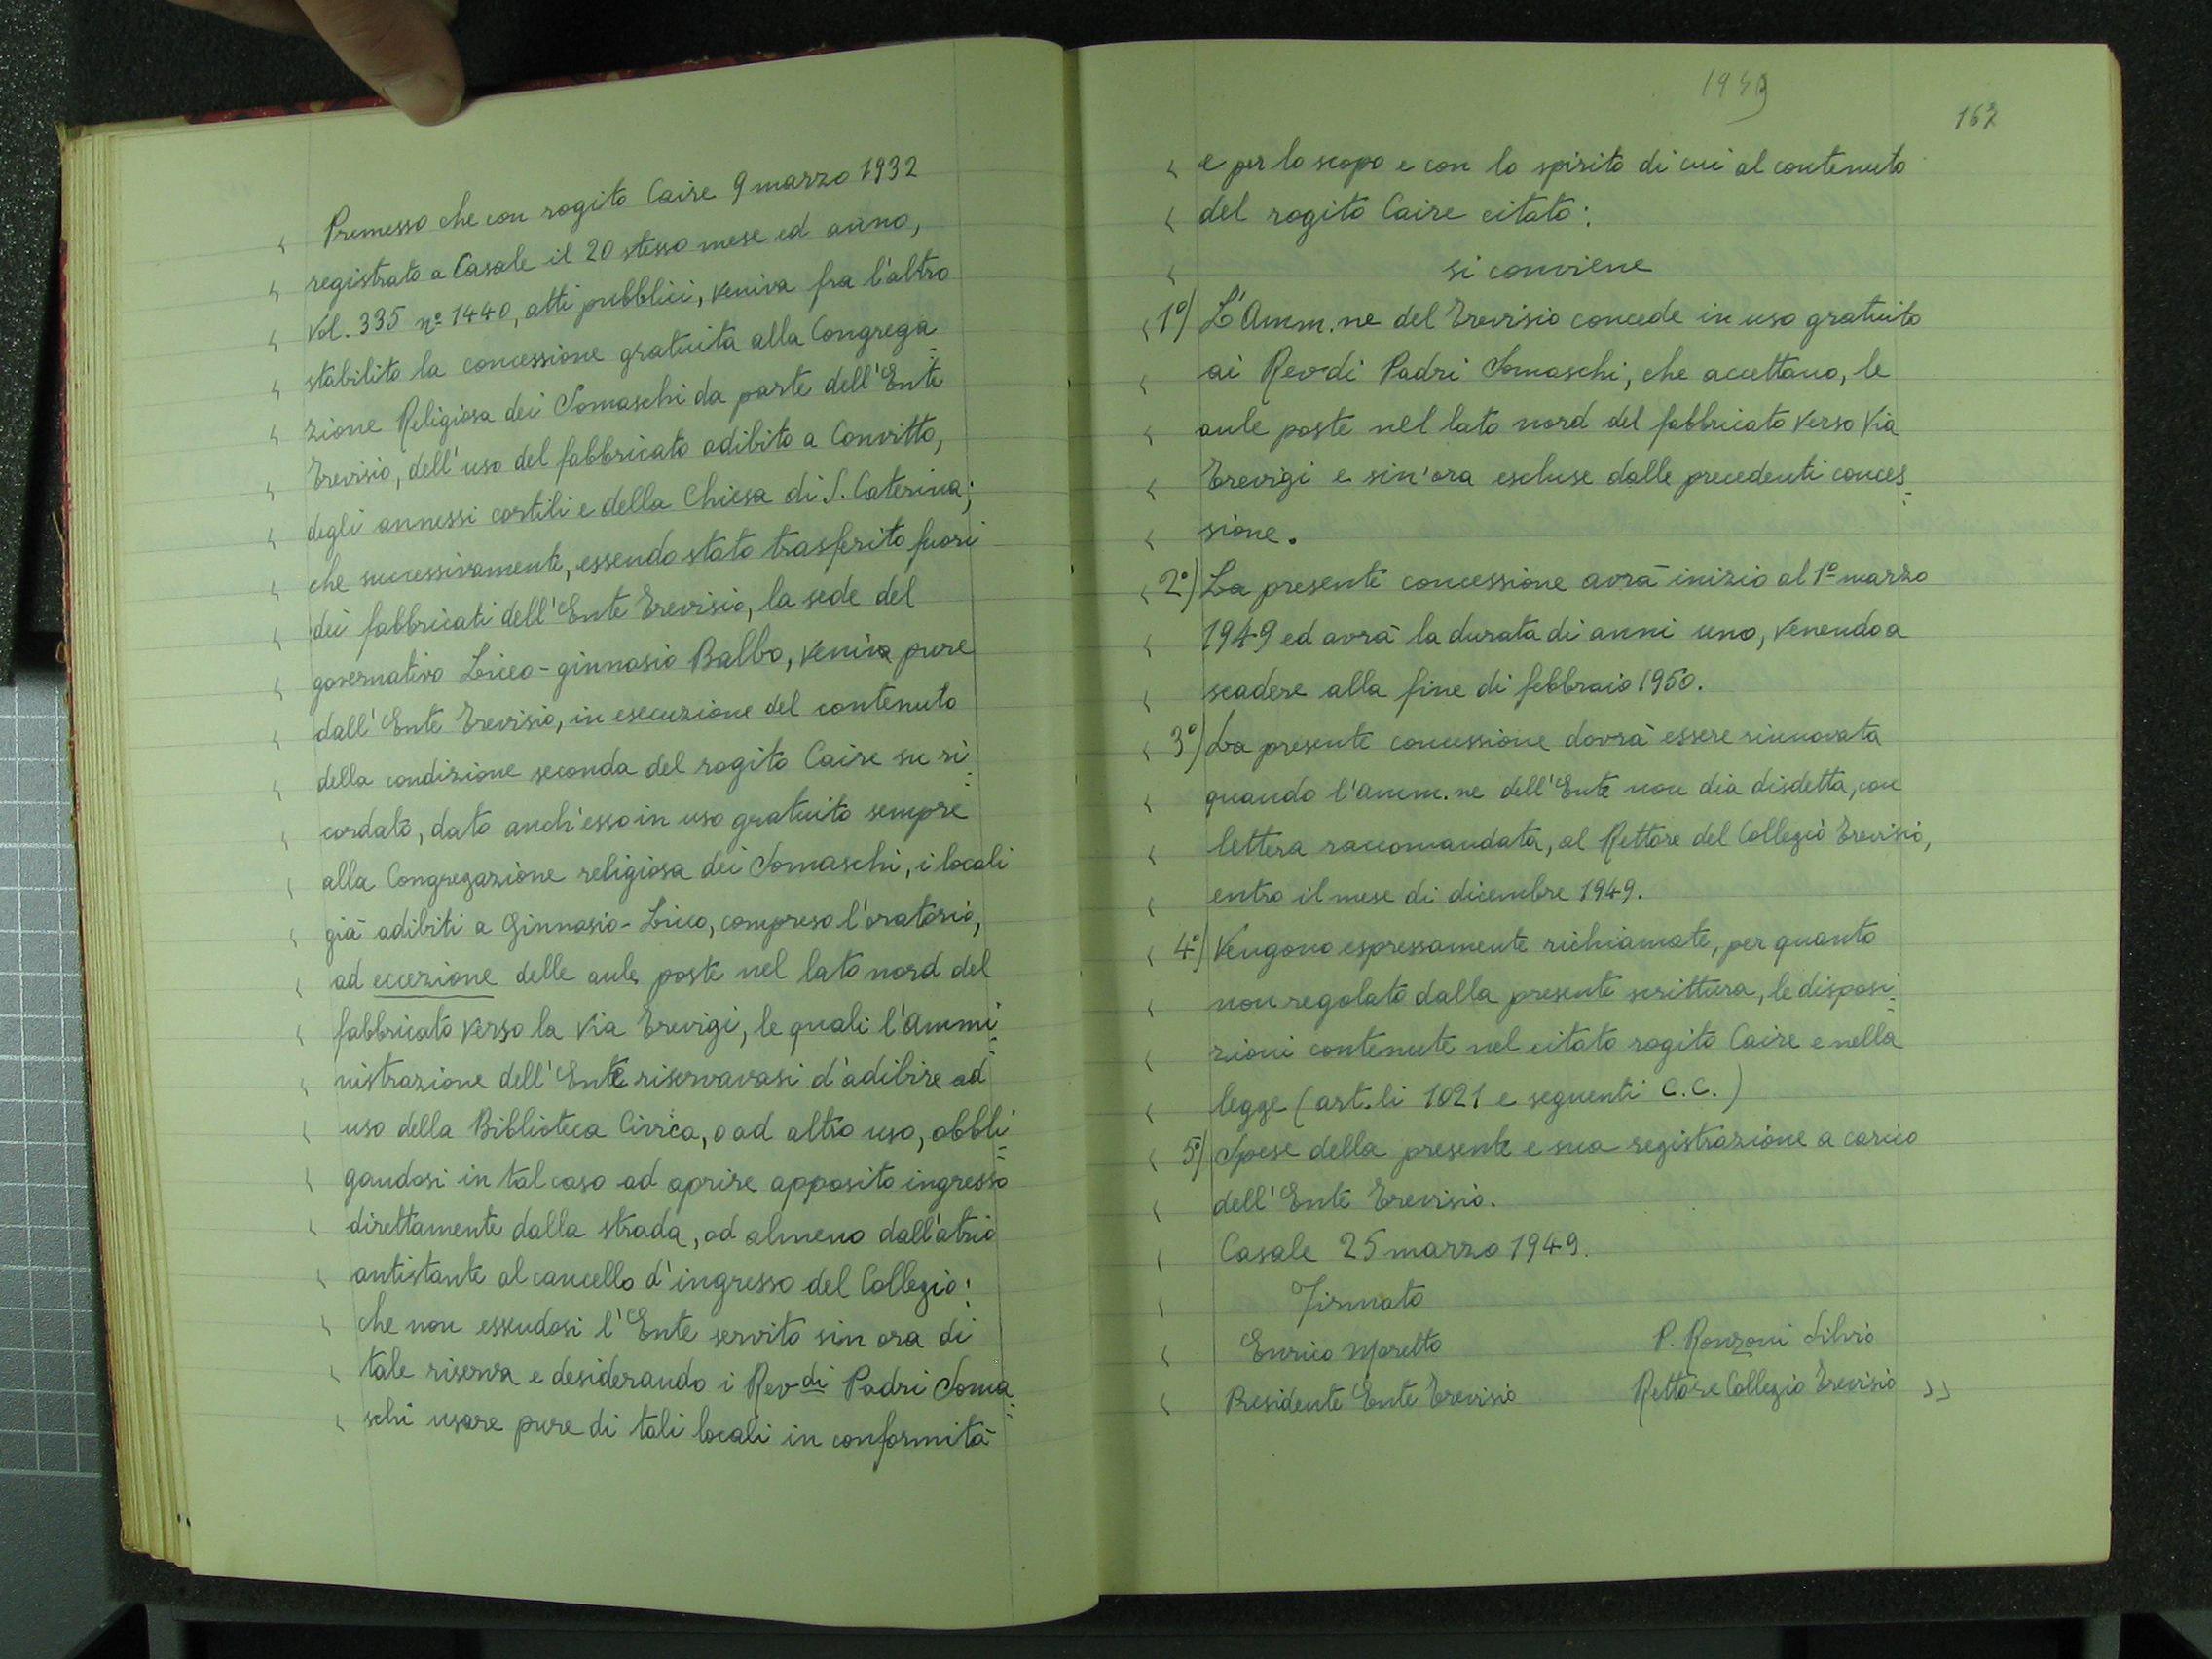 « Premesso che con rogito Caire 9 marzo 1932
« registrato a Casale il 20 stesso mese ed anno,
« Vol. 335 nº 1440, atti pubblici, veniva fra l'altro
« stabilito la concessione gratuita alla Congrega=
« zione Religiosa dei Somaschi da parte dell'Ente
« Trevisio, dell'uso del fabbricato adibito a Convitto,
« degli annessi cortili e della Chiesa di S. Caterina;
« che successivamente, essendo stato trasferito fuori
« dei fabbricati dell'Ente Trevisio, la sede del
« governativo Liceo-ginnasio Balbo, veniva pure
« dall'Ente Trevisio, in esecuzione del contenuto
« della condizione seconda del rogito Caire su ri=
« cordato, dato anch'esso in uso gratuito sempre
« alla Congregazione religiosa dei Somaschi, i locali
« già adibiti a Ginnasio-Liceo, compreso l'oratorio,
« ad eccezione delle aule poste nel lato nord del
« fabbricato verso la Via Trevigi, le quali l'Ammi=
« nistrazione dell'Ente riservavasi d'adibire ad
« uso della Biblioteca Civica, o ad altro uso, obbli=
« gandosi in tal caso ad aprire apposito ingresso
« direttamente dalla strada, od almeno dall'atrio
« antistante al cancello d'ingresso del Collegio:
« che non essendosi l'Ente servito sin ora di
« tale riserva e desiderando i Revdi Padri Soma=
« schi usare pure di tali locali in conformità
1949
167
« e per lo scopo e con lo spirito di cui al contenuto
« del rogito Caire citato:
« si conviene
« 1º) L'Amm.ne del Trevisio concede in uso gratuito
« ai Revdi Padri Somaschi, che accettano, le
« aule poste nel lato nord del fabbricato verso Via
« Trevigi e sin'ora escluse dalle precedenti conces=
« sione.
« 2º) La presente concessione avrà inizio al 1º marzo
« 1949 ed avrà la durata di anni uno, venendo a
« scadere alla fine di febbraio 1950.
« 3º) La presente concessione dovrà essere rinnovata
« quando l'amm.ne dell'Ente non dia disdetta, con
« lettera raccomandata, al Rettore del Collegio Trevisio,
« entro il mese di dicembre 1949.
« 4º) Vengono espressamente richiamate, per quanto
« non regolato dalla presente scrittura, le disposi=
« zioni contenute nel citato rogito Caire e nella
« legge (art.li 1021 e seguenti C.C.)
« 5º) Spese della presente e sua registrazione a carico
« dell'Ente Trevisio.
« Casale 25 marzo 1949.
« Firmato
« Enrico Moretto P. Ronzoni Silvio
« Presidente Ente Trevisio Rettore Collegio Trevisio »